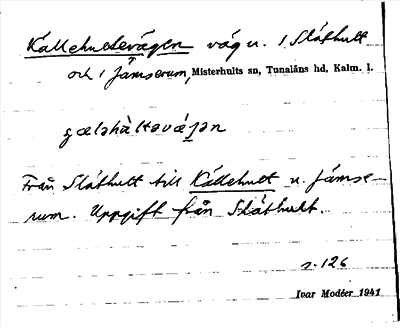 Källehultevägen väg n. i Slåthult
och i Jämserum, Misterhults sn, Tunaläns hd, Kalm. l.
gæləhàltəvǽjən
Från Slåthult till Källehult n. Jämse-
rum. Uppgift från Slåthult.
s. 126
Ivar Modéer 1941